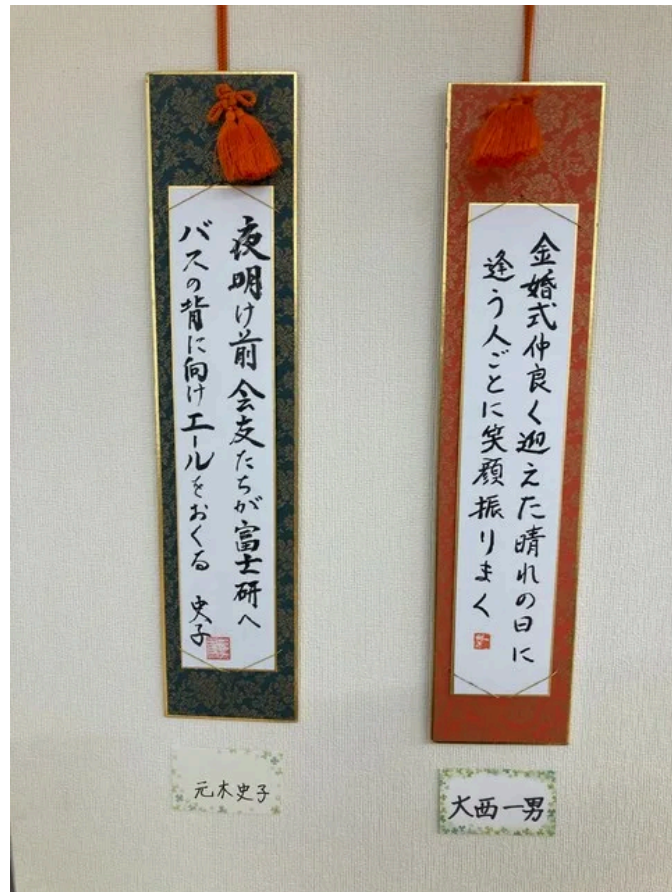 金婚式仲良く迎えた晴れの日に
逢う人ごとに笑顔振りまく
大西一男
夜明け前会友たちが富士研へ
バスの背に向けエールをおくる 史子
元木史子